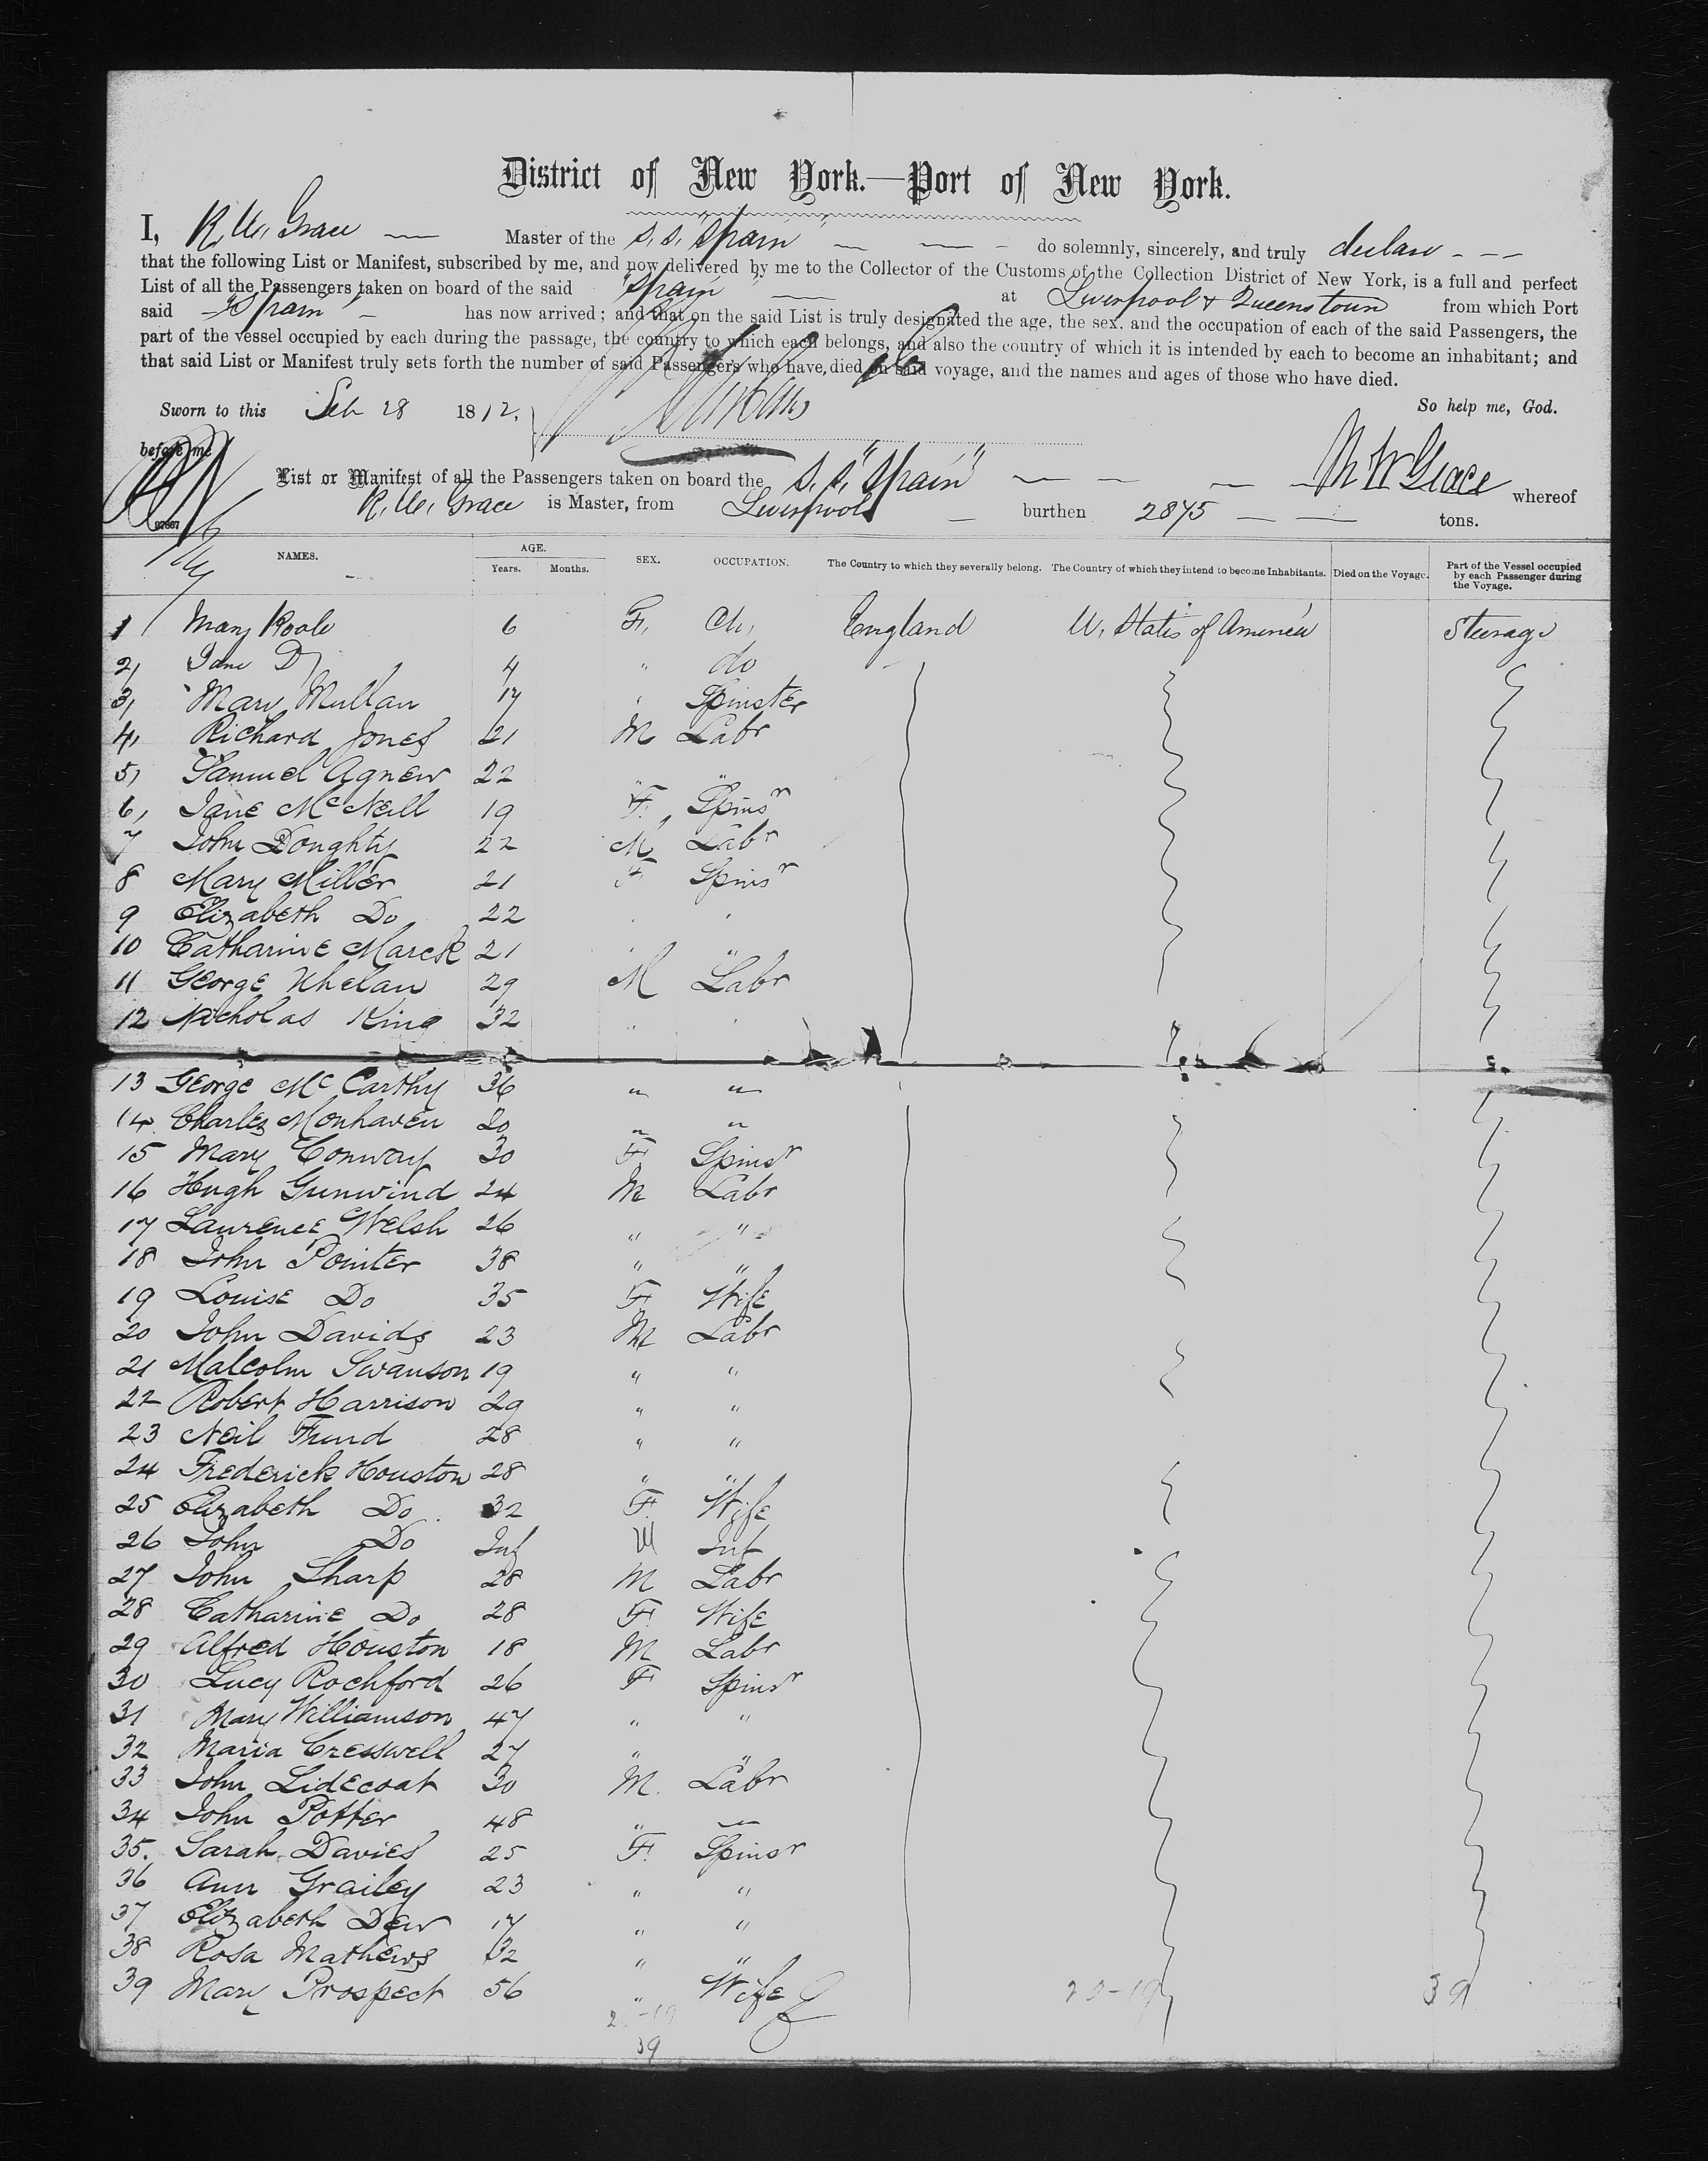 District of New York.—Port of New York.
I, R. W. Grace — Master of the S. S. "Spain" — — - do solemnly, sincerely, and truly declare - - -
that the following List or Manifest, subscribed by me, and now delivered by me to the Collector of the Customs of the Collection District of New York, is a full and perfect
List of all the Passengers taken on board of the said "Spain" — at Liverpool & Queenstown from which Port
said - "Spain" - has now arrived; and that on the said List is truly designated the age, the sex. and the occupation of each of the said Passengers, the
part of the vessel occupied by each during the passage, the country to which each belongs, and also the country of which it is intended by each to become an inhabitant; and
that said List or Manifest truly sets forth the number of said Passengers who have, died on said voyage, and the names and ages of those who have died.
Sworn to this Feb 28 1872, So help me, God.
before me
List or Manifest of all the Passengers taken on board the S. S. "Spain" — — — — R W Grace whereof
R. W. Grace is Master, from Liverpool — burthen 2875 — — tons.
NAMES. AGE. Years. Months. SEX. OCCUPATION. The Country to which they severally belong. The Country of which they intend to become Inhabitants. Died on the Voyage. Part of the Vessel occupied by each Passenger during the Voyage.
1 Mary Poole 6 F, Ch, England U. States of America Steerage
2, Jane Do 4 " do
3, Mary Mullan 17 " Spinster
4, Richard Jones 21 M Labr
5, Samuel Agnew 22 " "
6, Jane McNeill 19 F. Spinsr
7 John Doughty 22 M Labr
8 Mary Miller 21 F Spinsr
9 Elizabeth Do 22 " "
10 Catharine Marck 21 " "
11 George Whelan 29 M Labr
12 Nicholas King 32 " "
13 George McCarthy 36 " "
14 Charles Monhaven 20 " "
15 Mary Conway 30 F Spinsr
16 Hugh Gunwind 24 M Labr
17 Laurence Welsh 26 " "
18 John Pointer 38 " "
19 Louise Do 35 F Wife
20 John Davids 23 M Labr
21 Malcolm Swanson 19 " "
22 Robert Harrison 29 " "
23 Neil Frund 28 " "
24 Frederick Houston 28 " "
25 Elizabeth Do. 32 F. Wife
26 John Do Inf M Inf
27 John Sharp 28 M Labr
28 Catharine Do 28 F Wife
29 Alfred Houston 18 M Labr
30 Lucy Rochford 26 F Spinsr
31 Mary Williamson 47 " "
32 Maria Cresswell 27 " "
33 John Lidecoat 30 M. Labr
34 John Potter 48 " "
35. Sarah Davies 25 F. Spinsr
36 Ann Grailey 23 " "
37 Elizabeth Dew 17 " "
38 Rosa Mathews 32 " "
39 Mary Prospect 56 " Wife
20-19 39
39